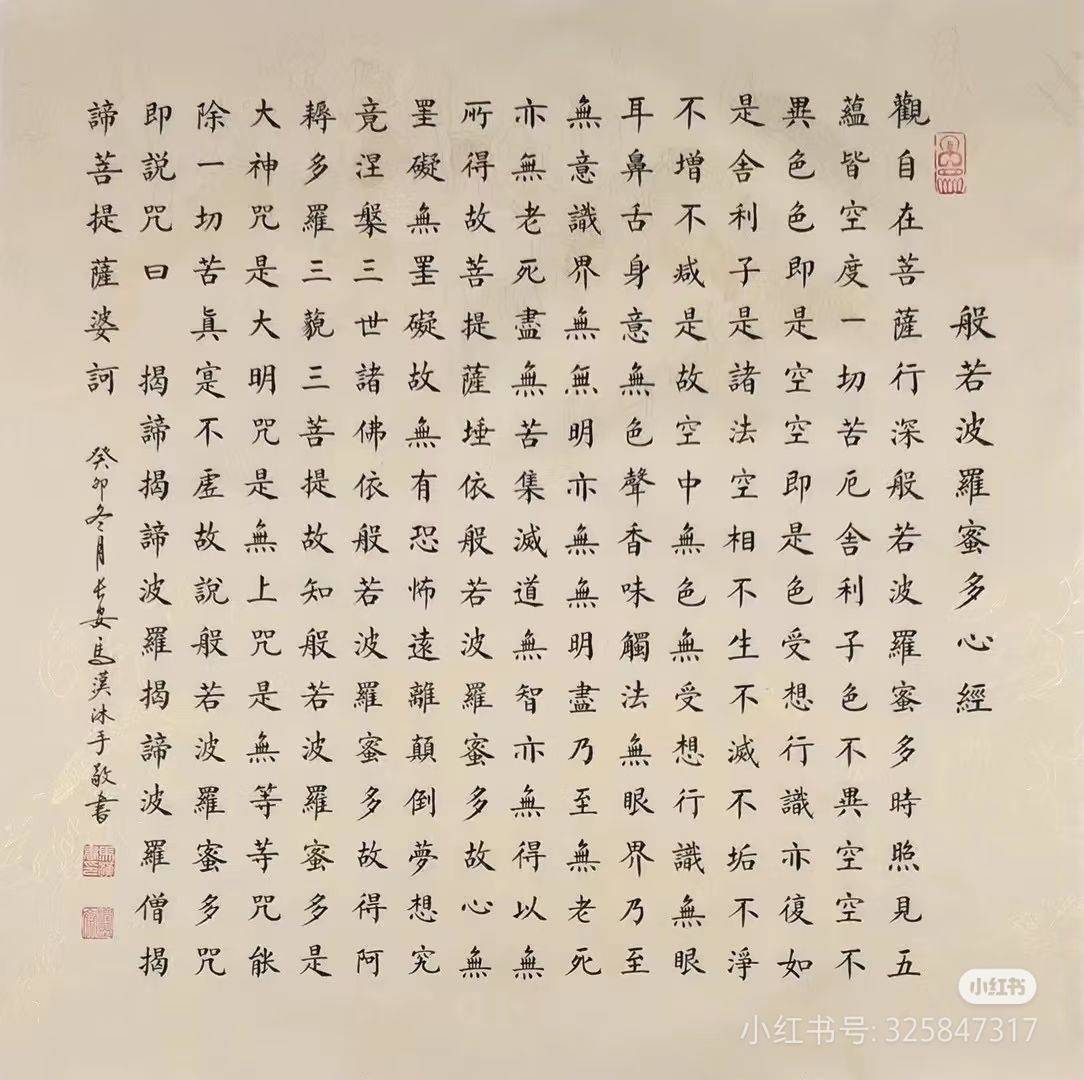 般若波羅蜜多心經
觀自在菩薩行深般若波羅蜜多時照見五
蘊皆空度一切苦厄舍利子色不異空空不
異色色即是空空即是色受想行識亦復如
是舍利子是諸法空相不生不滅不垢不淨
不增不减是故空中無色無受想行識無眼
耳鼻舌身意無色聲香味觸法無眼界乃至
無意識界無無明亦無無明盡乃至無老死
亦無老死盡無苦集滅道無智亦無得以無
所得故菩提薩埵依般若波羅蜜多故心無
罣礙無罣礙故無有恐怖遠離顛倒夢想究
竟涅槃三世諸佛依般若波羅蜜多故得阿
耨多羅三藐三菩提故知般若波羅蜜多是
大神咒是大明咒是無上咒是無等等咒能
除一切苦眞寔不虛故說般若波羅蜜多咒
即說咒曰 揭諦揭諦波羅揭諦波羅僧揭
諦菩提薩婆訶
癸卯冬月長安馬漢沐手敬書
小红书
小红书号: 325847317